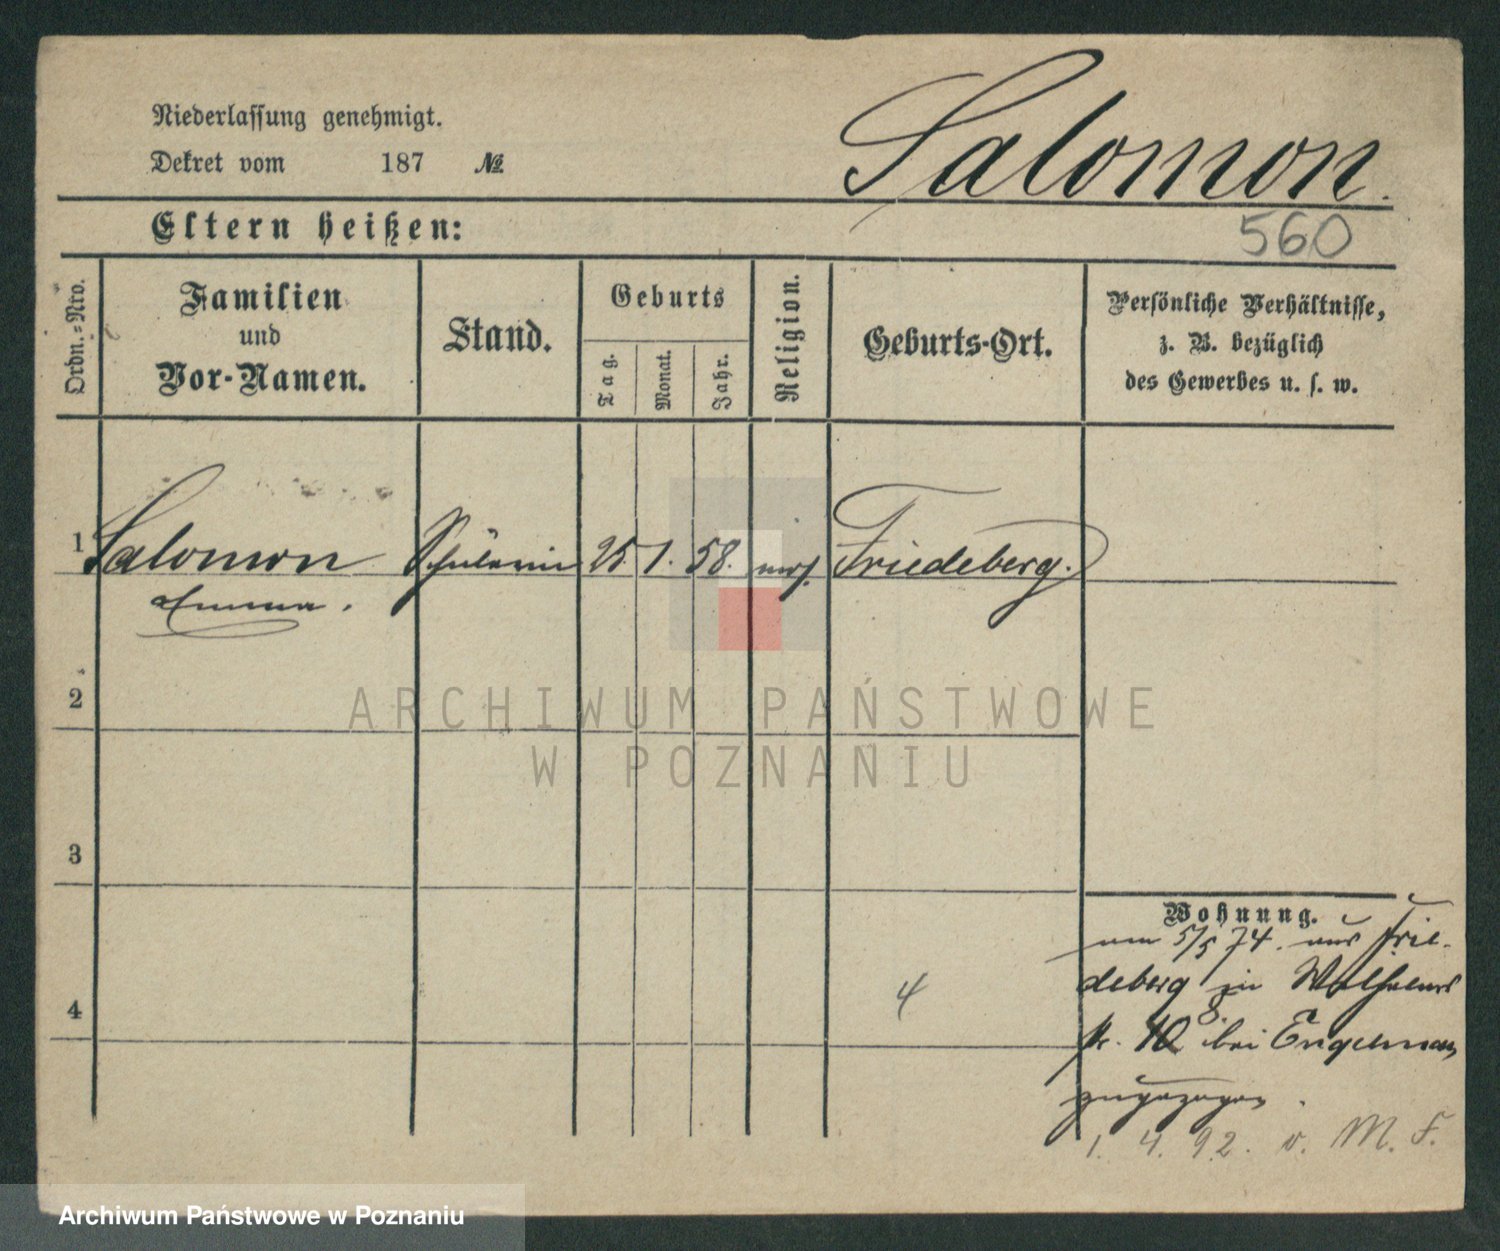 Niederlassung genehmigt.
Dekret vom 187 №
Salomon.
560
Eltern heißen:
Ordn.=Nro.
Familien
und
Vor-Namen.
Stand.
Geburts
Tag.
Monat.
Jahr.
Religion.
Geburts-Ort.
Persönliche Verhältnisse,
z. B. bezüglich
des Gewerbes u. s. w.
1 Salomon Schülerin 25. 1. 58. mos. Friedeberg.
Emma.
2
ARCHIWUM PAŃSTWOWE
W POZNANIU
3
Wohnung.
am 5/5 74. aus Frie-
deberg zu Wilhelms
4
4
str. 10 8. bei Engelmann
zugezogen.
1. 4. 92. v. M. F.
Archiwum Państwowe w Poznaniu